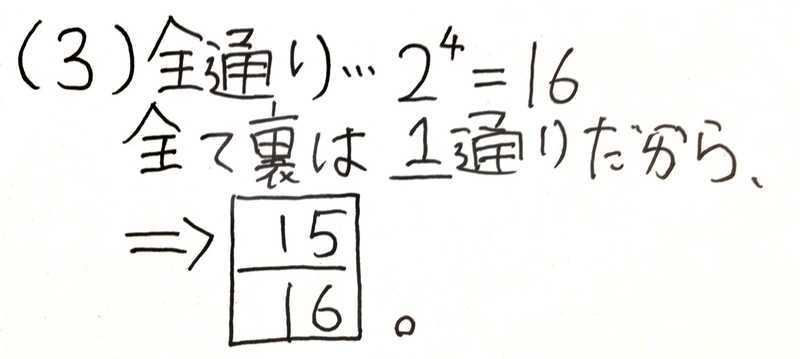 (3)全通り…2⁴=16
全て裏は1通りだから、
⇒ 15/16。